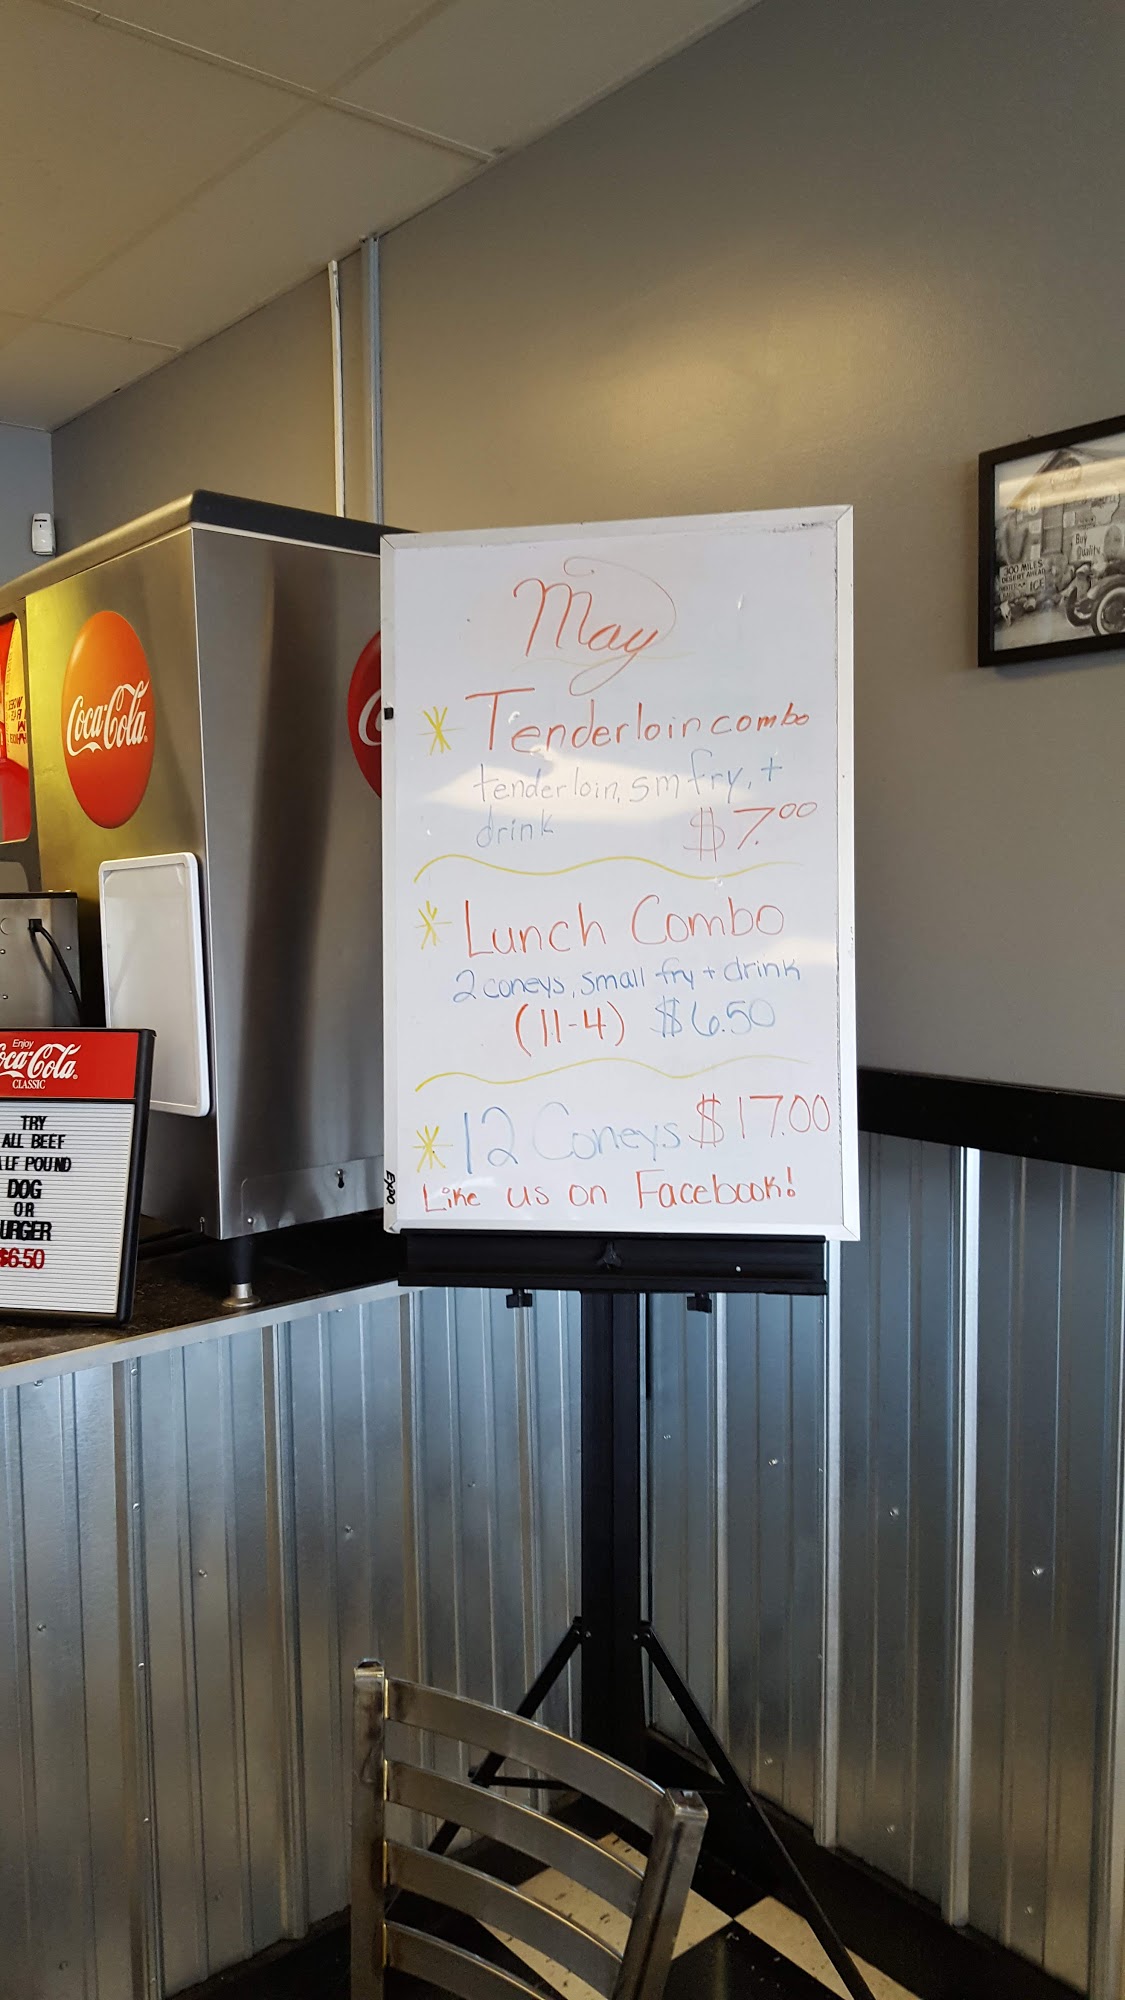 May
* Tenderloin combo
tenderloin, sm fry, +
drink $7.00
* Lunch Combo
2 coneys, small fry + drink
(11-4) $6.50
* 12 Coneys $17.00
Like us on Facebook!
EXPO
Coca-Cola
Enjoy
Coca-Cola
CLASSIC
TRY
ALL BEEF
LF POUND
DOG
OR
URGER
$6.50
300 MILES
DESERT AHEAD
ICE
Buy
Quality